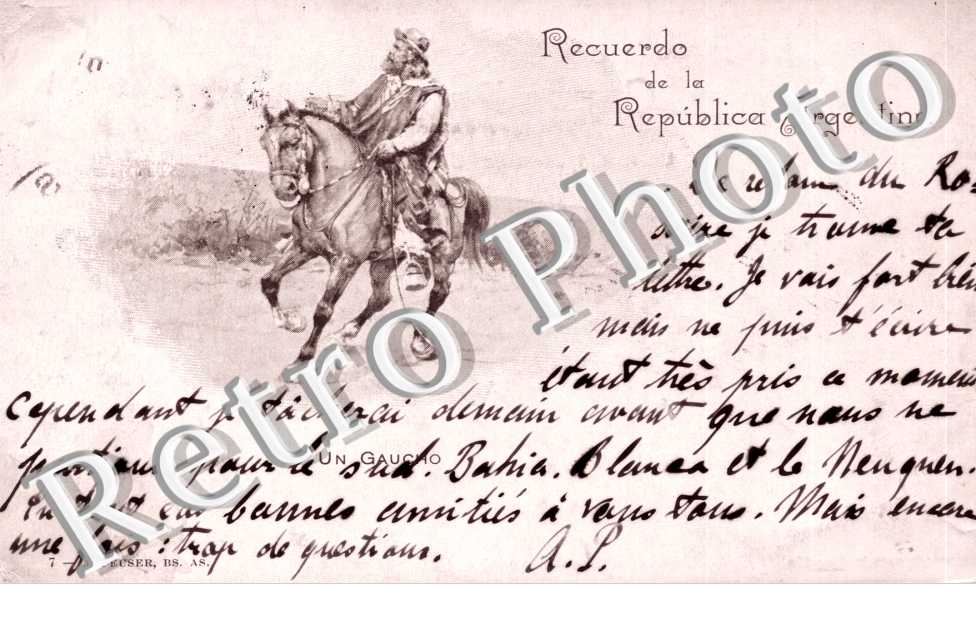 Recuerdo
de la
República Argentina
retour du Ro-
saire je trouve ta
lettre. Je vais fort bien
mais ne puis t'écrire
étant très pris ce moment
cependant je tâcherai demain avant que nous ne
partions pour le sud. Bahia. Blanca et le Neuquen.
Un Gaucho
En tout cas bonnes amitiés à vous tous. Mais encore
une fois : trop de questions. A.P.
7 — PEUSER, BS. AS.
Retro Photo